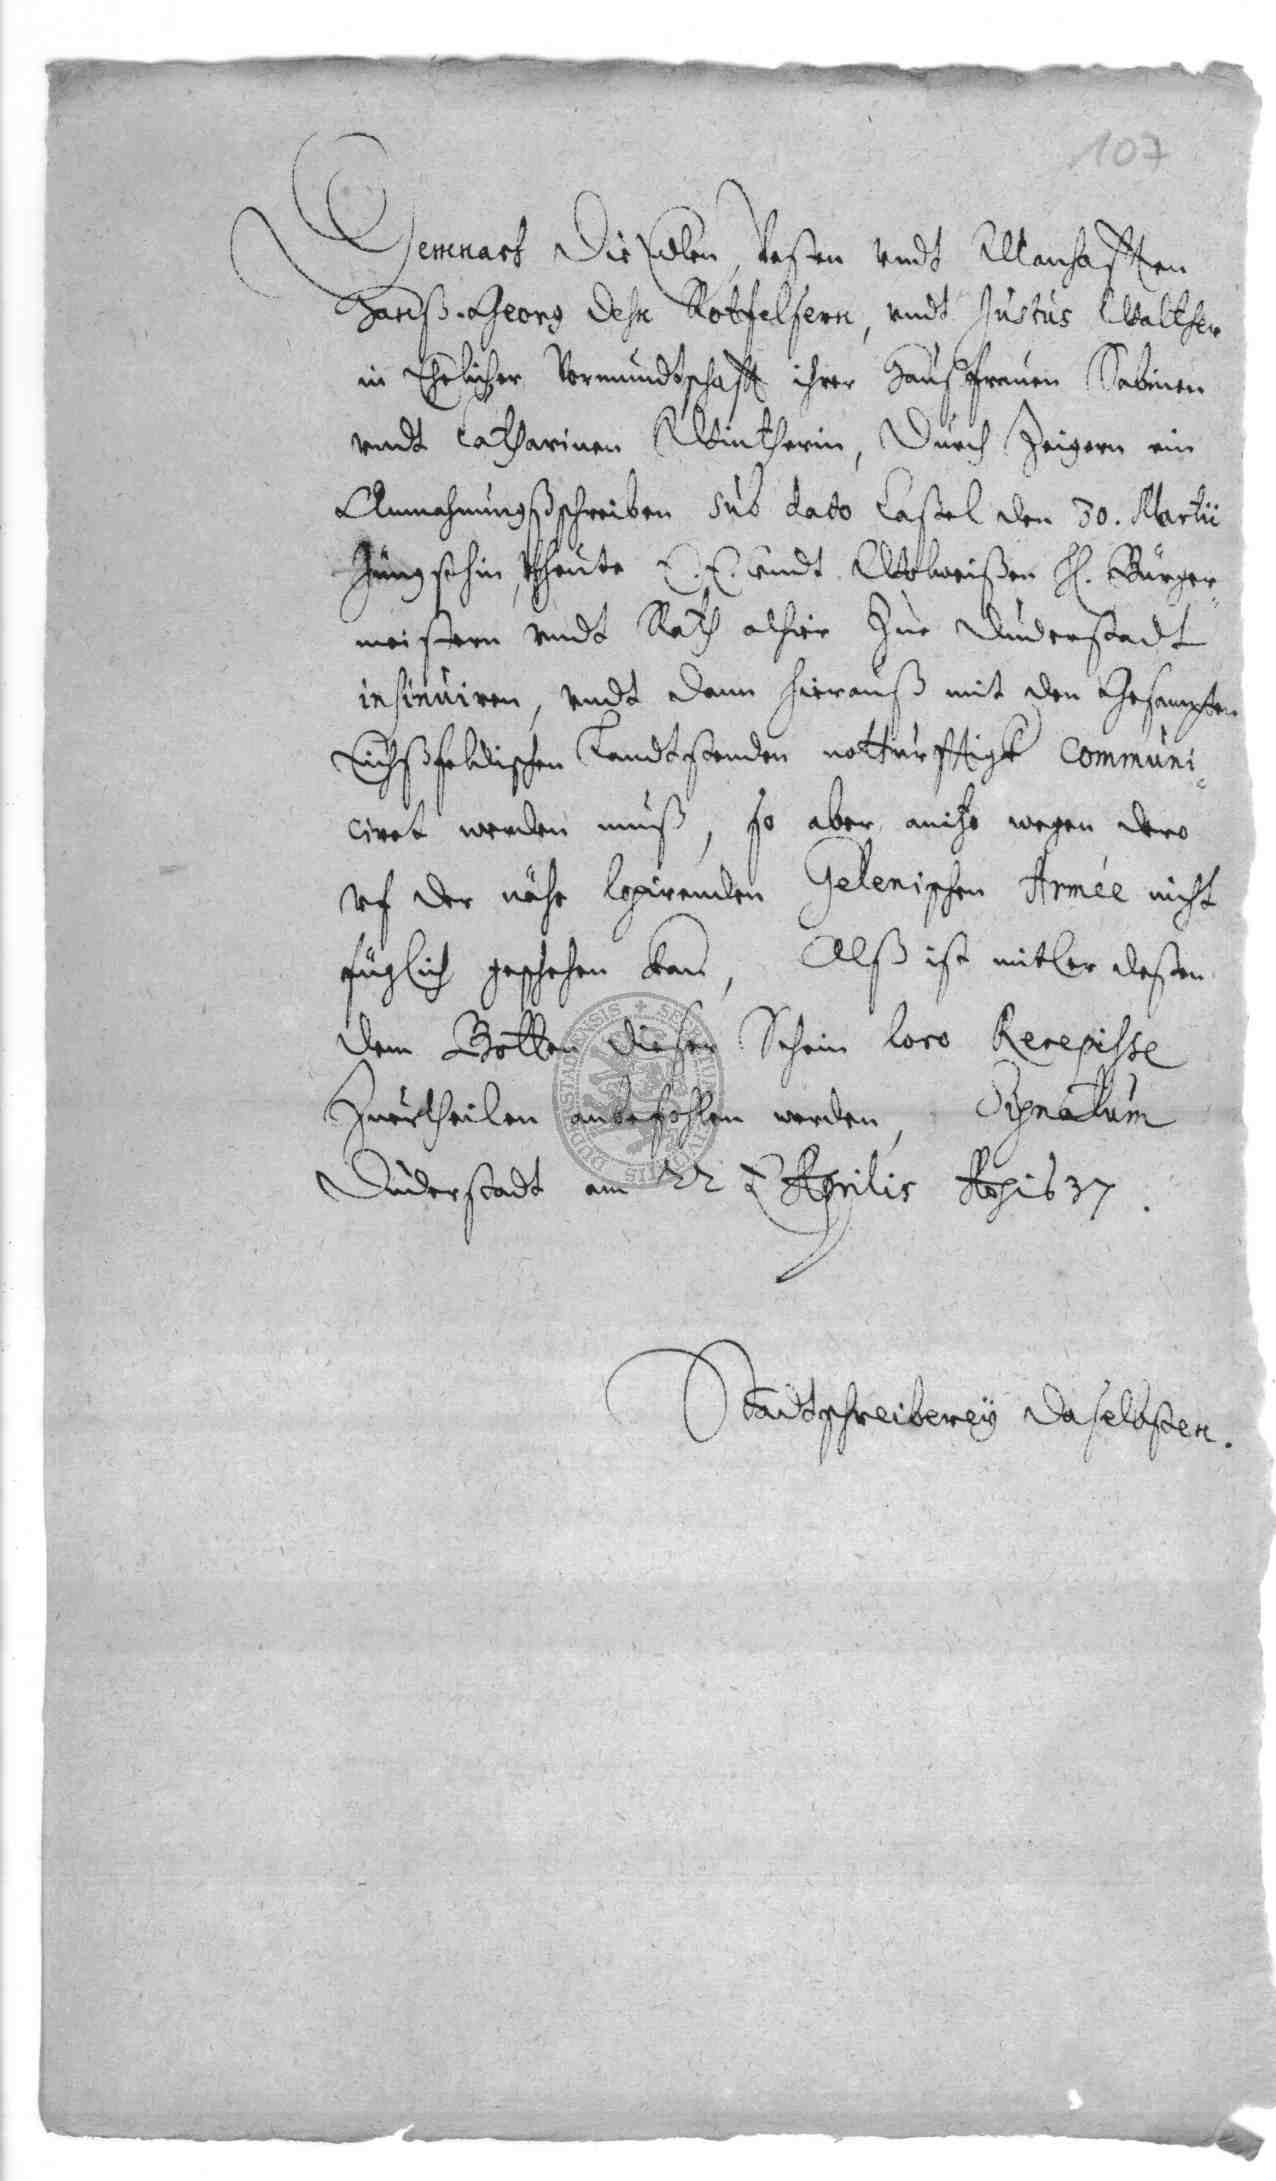 107
Demnach Die Edlen, Vesten vndt Manhafften
Hanß Georg Dehn Rotfelsern, vndt Justus Walther
in Ehelicher Vormundtschafft ihrer Haußfrauen Sabinen
vndt Catharinen Wintherin, Durch Zeigern ein
Anmahnungßschreiben sub dato Caßel den 30. Martii
Jüngsthin, heute E. E. vndt Wolweißen H. Bürger-
meistern vndt Rath alhier Zue Duderstadt
insinuiren, vndt dann hierauß mit den Gesampten
Eichßfeldischen Landtstenden notturfftigk communi-
ciret werden muß, so aber anitzo wegen dero
vf der nähe logirenden Gelenischen Armée nicht
füglich geschehen kan, Alß ist mitler deßen
dem Botten dieser Schein loco Recepisse
Zuertheilen anbefohlen worden, Signatum
Duderstadt am 22 Aprilis 1637.
Stadtschreiberey Daselbsten.